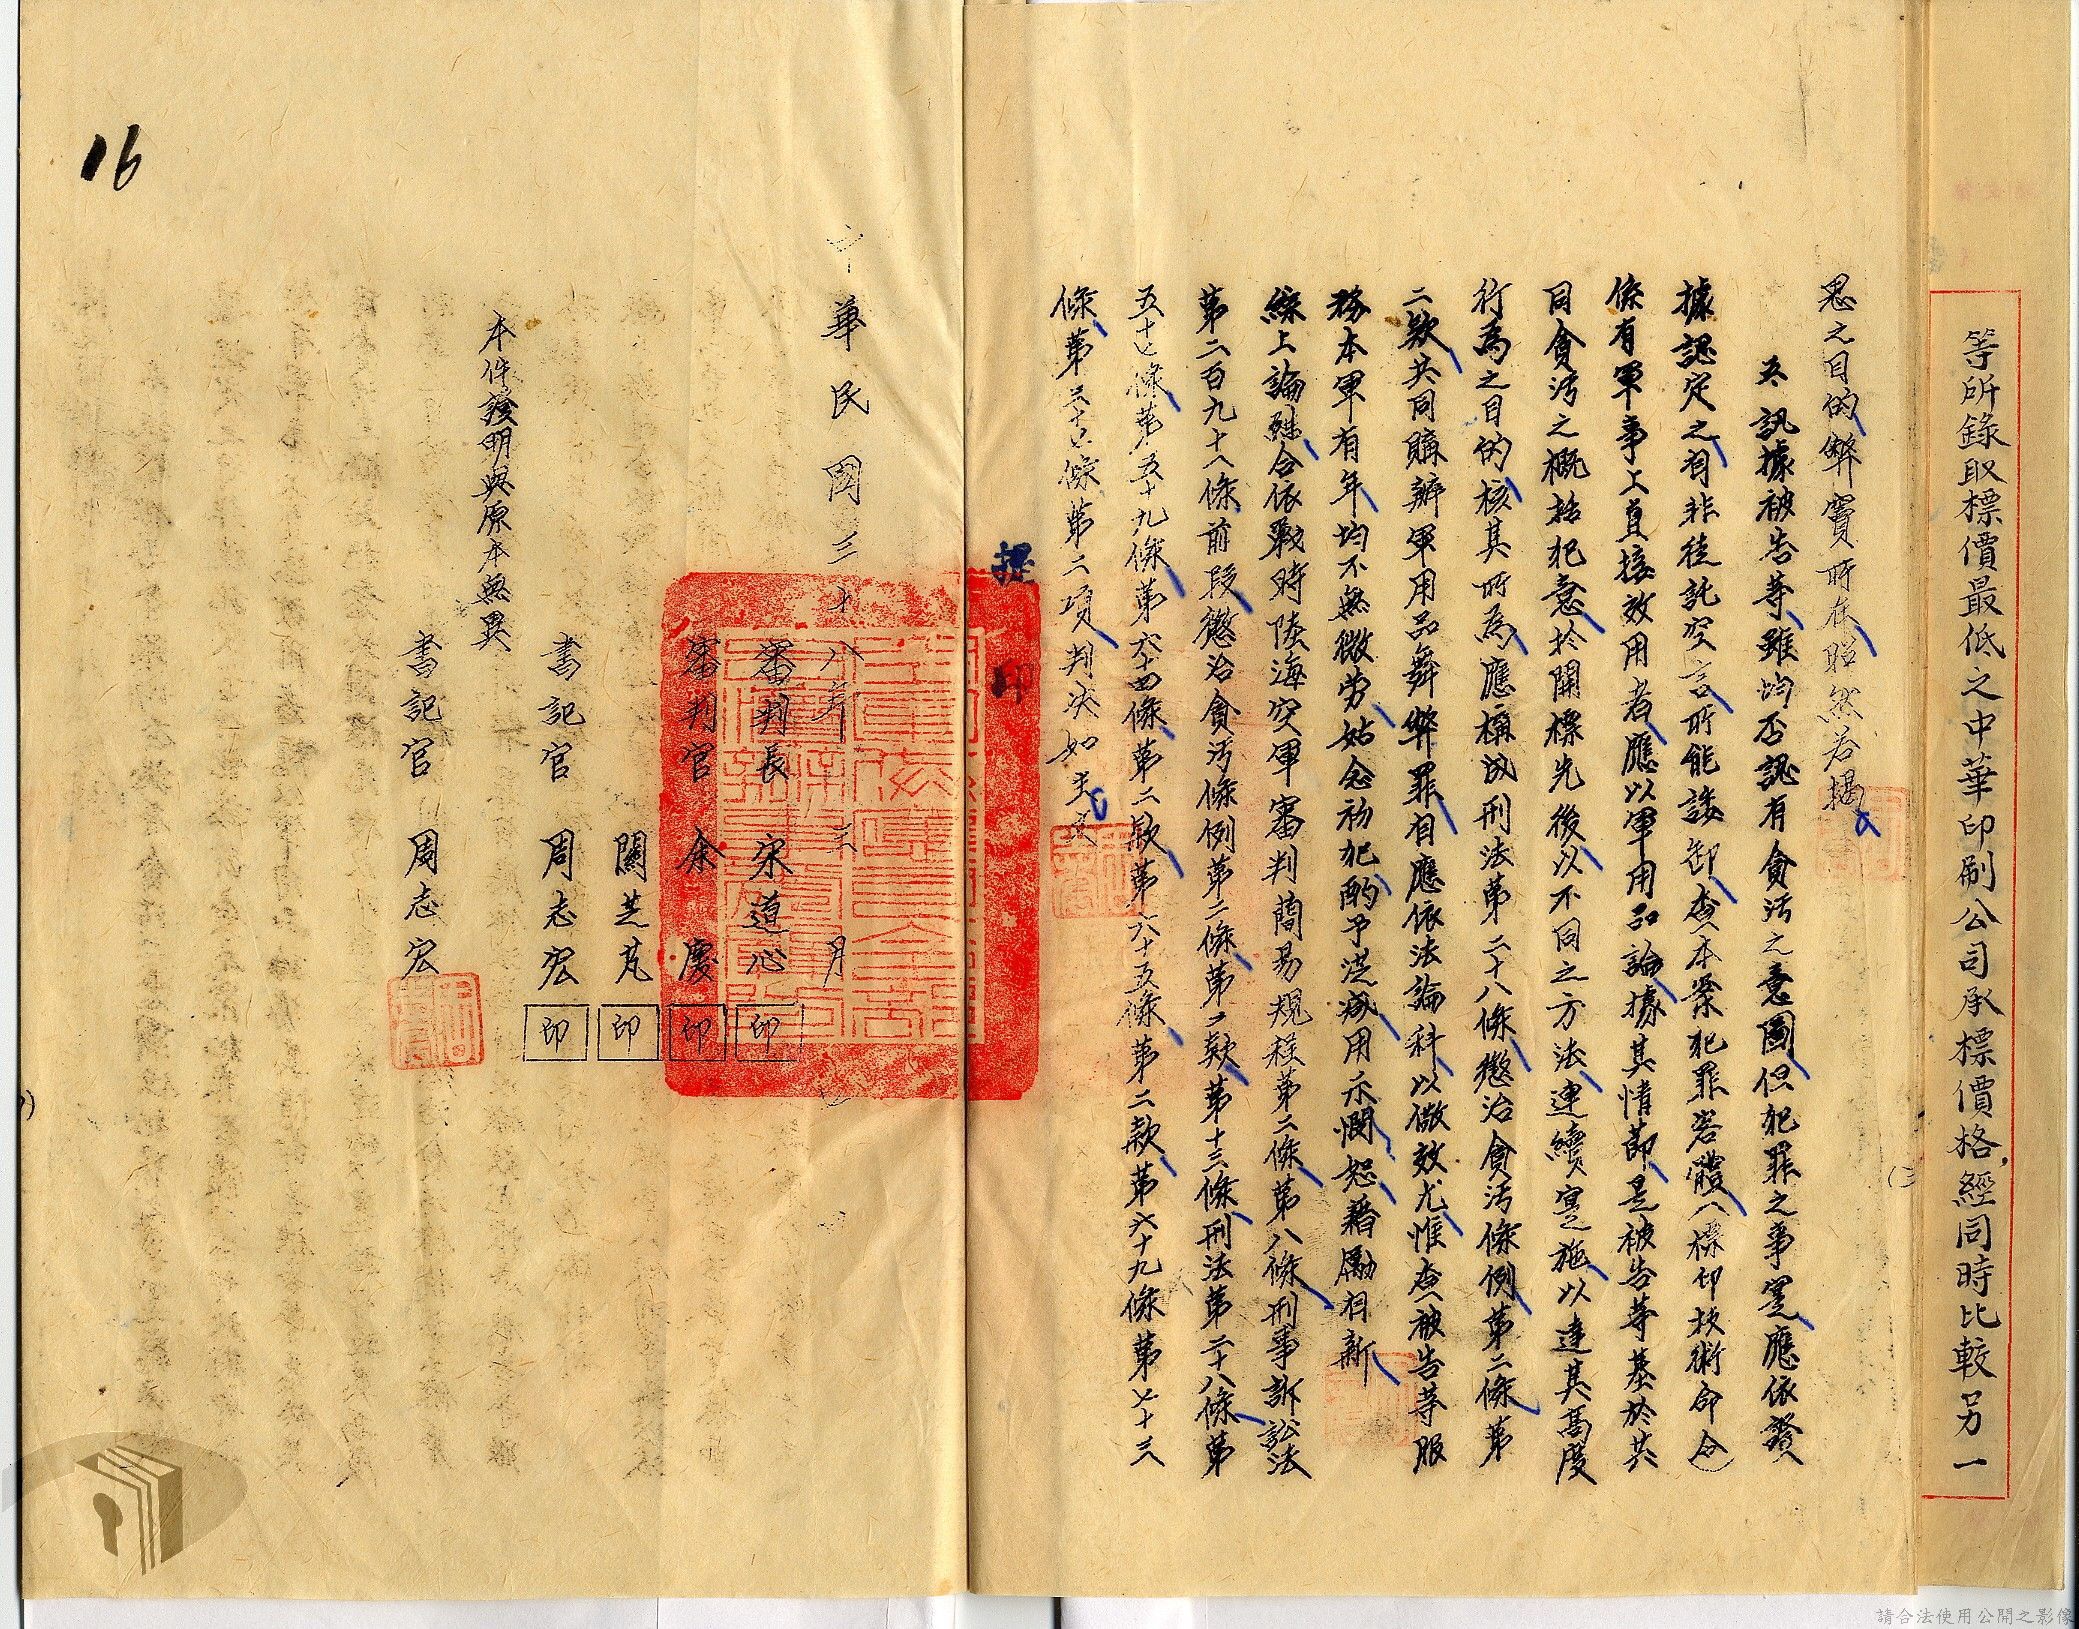 等所錄取標價最低之中華印刷公司承標價格,經同時比較另一
思之目的弊竇所在昭然若揭
五、訊據被告等雖均否認有貪污之意圖但犯罪之事實應依證
據認定之自非徒託空言所能諉卸查本案犯罪客體八標印技術命令
係有軍事上直接效用者應以軍用品論據其情節是被告等基於共
同貪污之概括犯意於開標先後以不同之方法連續實施以達其高度
行為之目的核其所為應構成刑法第二十八條懲治貪污條例第二條第
二款共同購辦軍用品舞弊罪自應依法論科以儆效尤惟查被告等服
務本軍有年均不無微勞姑念初犯酌予減用示憫恕藉勵自新
綜上論結合依戰時陸海空軍審判簡易規程第二條第八條刑事訴訟法
第二百九十八條前段懲治貪污條例第二條第二款第十三條刑法第二十八條第
五十七條第五十九條第六十四條第二款第六十五條第二款第六十九條第七十三
條第三十七條第二項判決如主文
印
中華民國三十八年三月
審判長 宋道心 印
審判官 余慶 印
關芝芃 印
書記官 周志宏 印
本件證明與原本無異
書記官 周志宏
16
請合法使用公開之影像